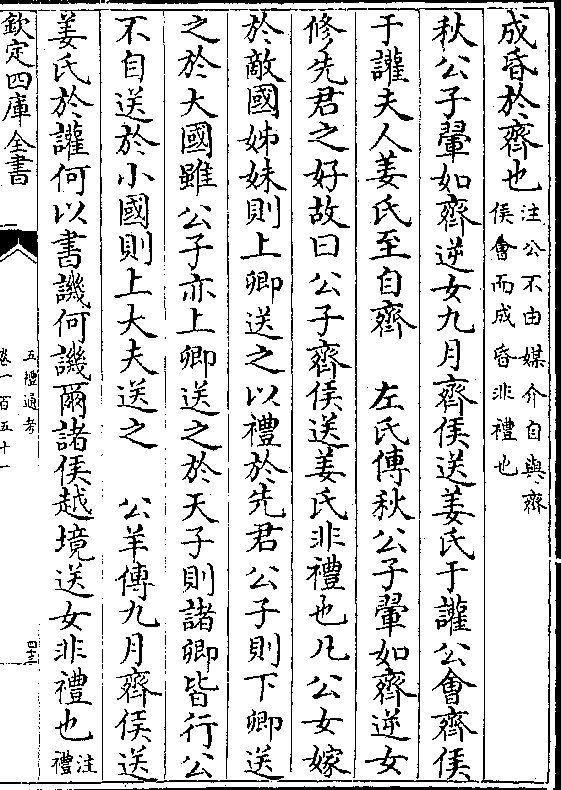 成昏於齊也注公不由媒介自與齊
侯會而成昏非禮也
秋公子翬如齊逆女九月齊侯送姜氏于讙公會齊侯
于讙夫人姜氏至自齊　左氏傳秋公子翬如齊逆女
修先君之好故曰公子齊侯送姜氏非禮也凡公女嫁
於敵國姊妹則上卿送之以禮於先君公子則下卿送
之於大國雖公子亦上卿送之於天子則諸卿皆行公
不自送於小國則上大夫送之　公羊傳九月齊侯送
姜氏於讙何以書譏何譏爾諸侯越境送女非禮也注
禮
欽定四庫全書
五禮通考
卷一百五十一
四三